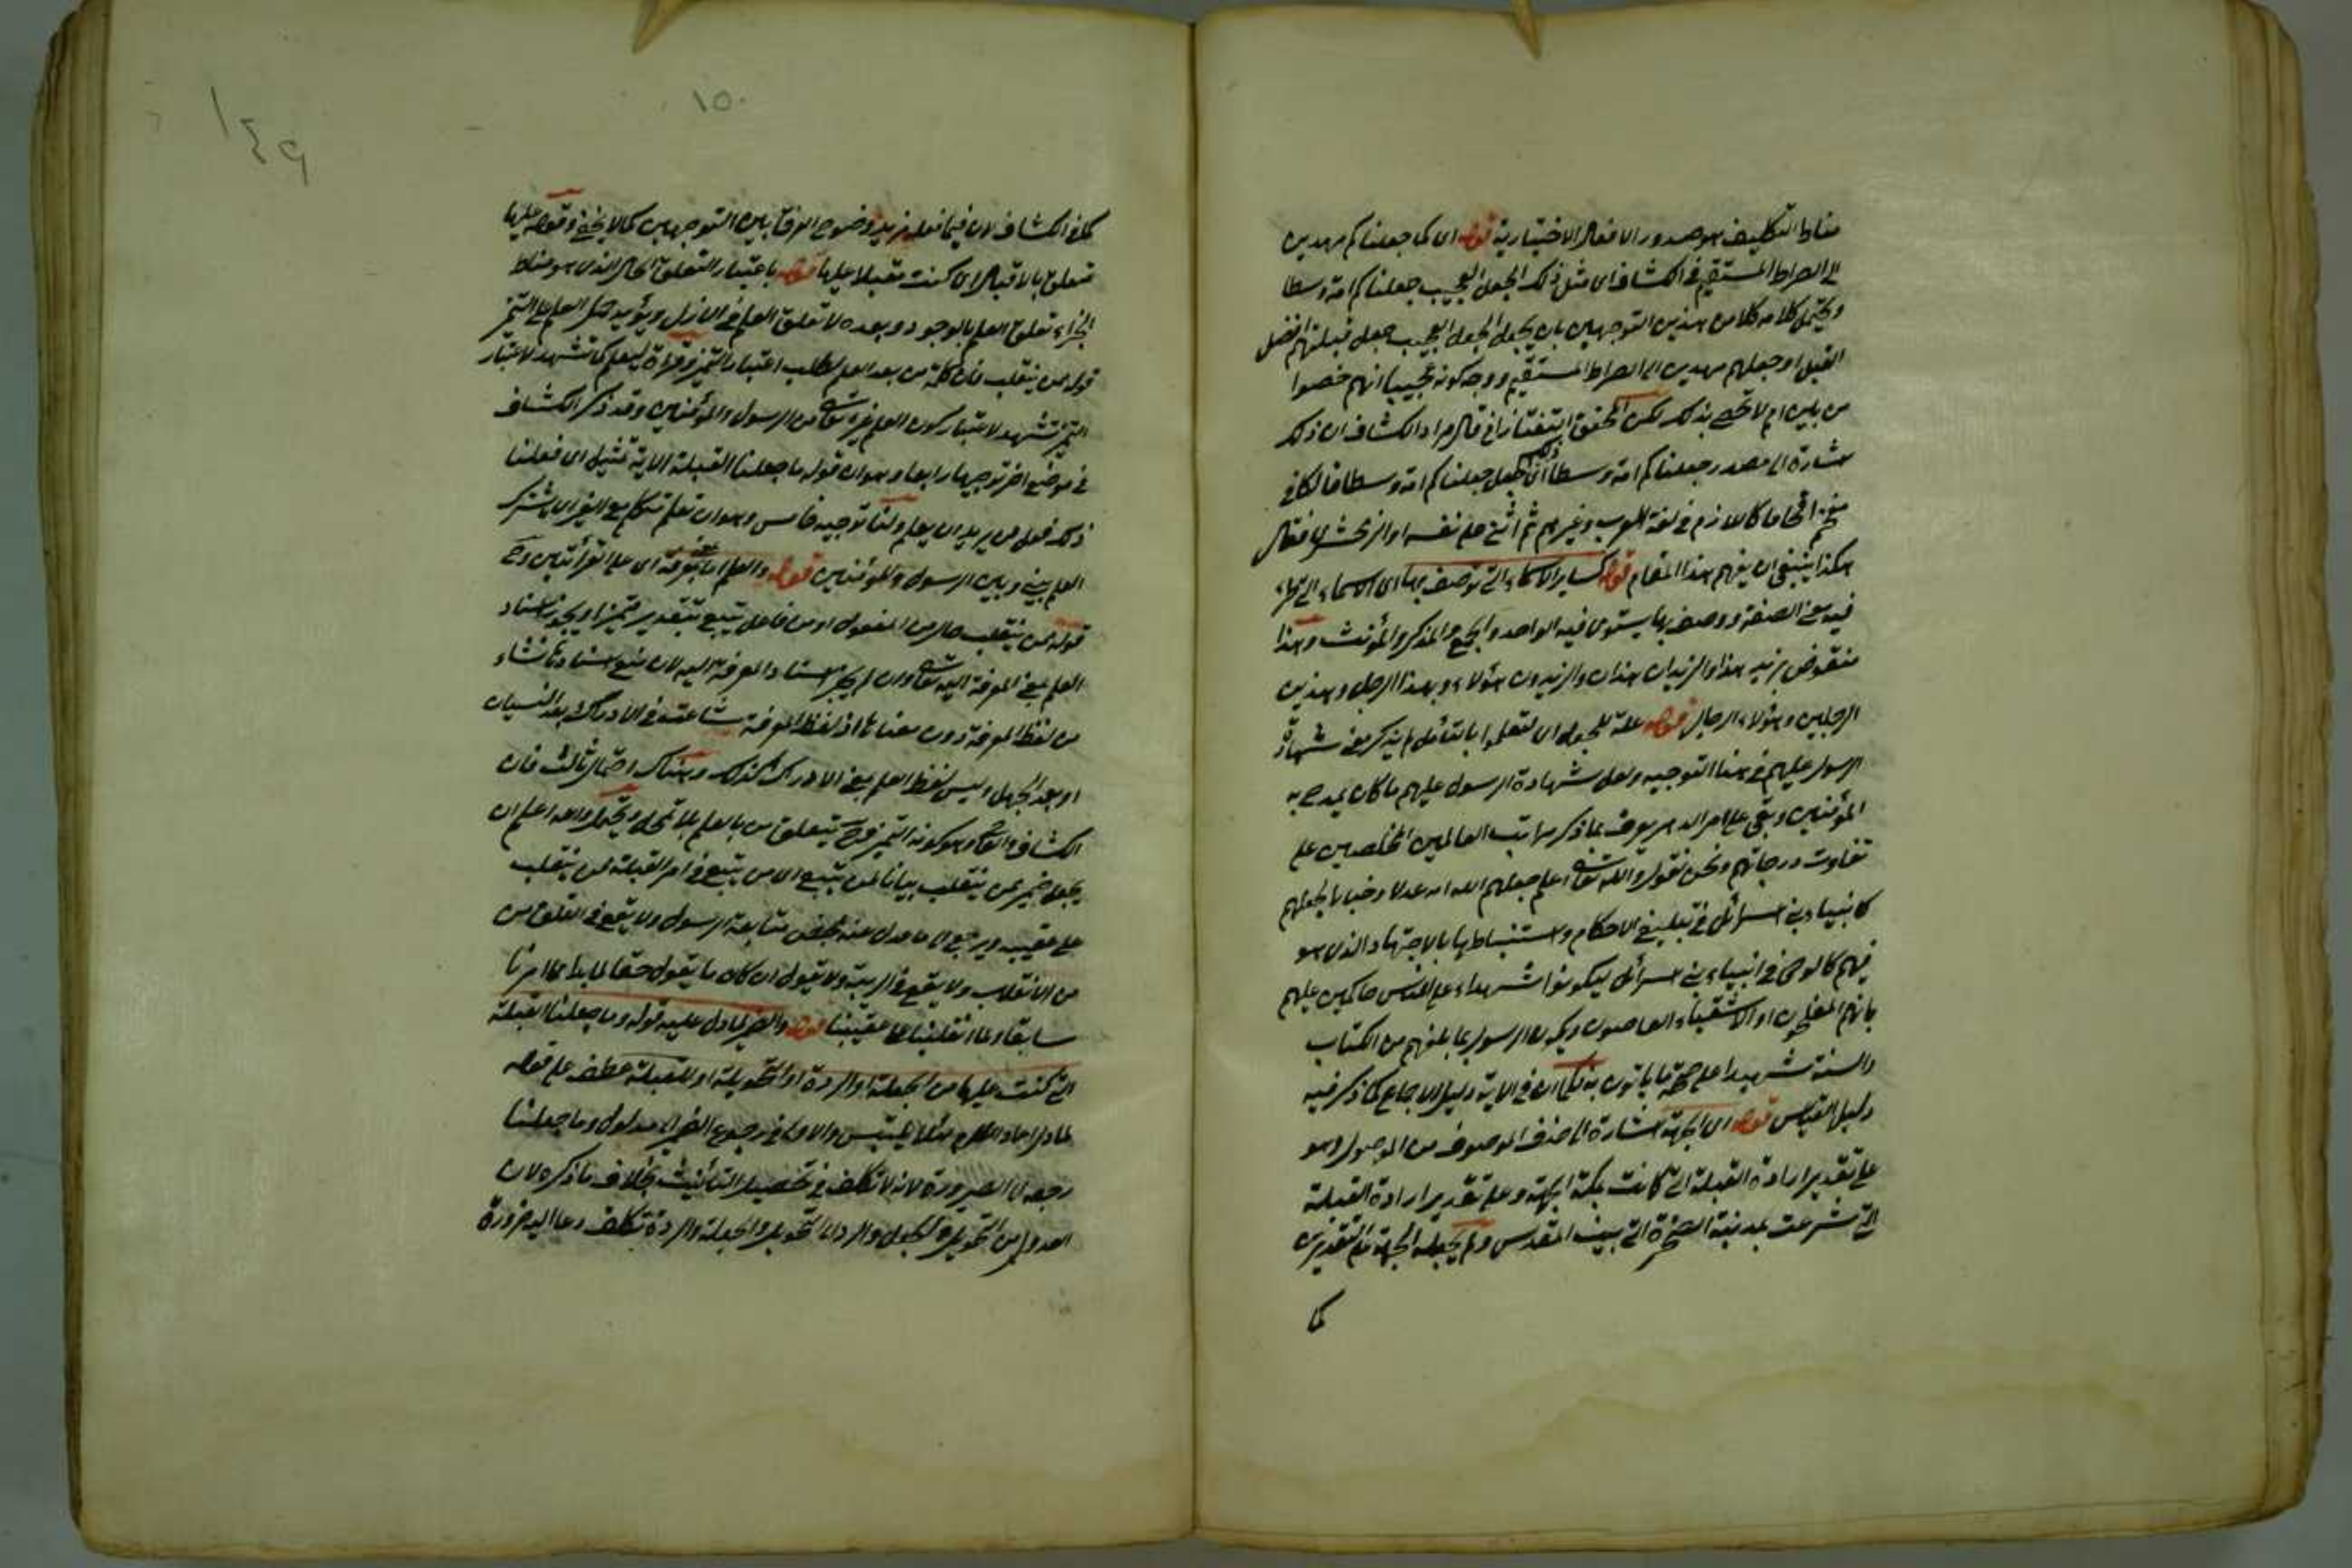 مناط التكليف هو صدور الافعال الاختيارية قوله اى كما جعلناكم مهديين
الى الصراط المستقيم فى الكشاف اى مثل ذلك الجعل العجيب جعلناكم امة وسطا
ويحتمل كلامه كلا من هذين التوجيهين بان يجعل الجعل العجيب جعل قبلتهم افضل
القبل او جعلهم مهديين الى الصراط المستقيم ووجه كونه عجيبا انهم خصوا
من بين امم لا تحصى بذلك لكن المحقق التفتازانى قال مراد الكشاف ان ذلك
اشارة الى مصدر جعلناكم امة وسطا اى ذلك الجعل جعلناكم امة وسطا فالكاف
مقحم اقحاما كاللازم فى لغة العرب وغيرهم ثم اثنى على نفسه او الزمخشرى فقال
هكذا ينبغى ان يفهم هذا المقام قوله كسائر الاسماء التى توصف بها اى الاسماء التى
فيه معنى الصفة ووصف بها يستوى فيه الواحد والجمع والمذكر والمؤنث وهذا
منقوض بزيد هذا والزيدان هذان والزيدون هؤلاء وبهذا الرجل وهذين
الرجلين وهؤلاء الرجال قوله علة للجعل اى لتعلموا بالتأمل لم يذكر معنى شهادة
الرسول عليهم فى هذا التوجيه ولعل شهادة الرسول عليهم ما كان يمدح به
المؤمنين وبقى على امر الدهر يعرف بما ذكر مراتب العالمين المخلصين على
تفاوت درجاتهم ونحن نقول والله تعالى اعلم جعلهم الله امة عدلا وخيارا يجعلهم
كانبياء بنى اسرائل فى تبليغ الاحكام واستنباطها بالاجتهاد الذى هو
فيهم كالوحى فى انبياء بنى اسرائل ليكونوا شهداء على الناس حاكمين عليهم
بانهم المفلحون او الاشقياء العاصون ويكون الرسول بما بلغهم من الكتاب
والسنة شهيدا على صحة ما ياتون به فكما ان فى الاية دليل الاجماع كما ذكر فيه
دليل القياس قوله اى الجهة اشارة الى حذف الموصوف من الموصول وهو
على تقدير ارادة القبلة التى كانت بمكة الجهة وعلى تقدير ارادة القبلة
التى شرعت بمدينة الصخرة التى ببيت المقدس ولم يجعله الجهة على التقديرين
كما
١٥٠
١٤٩
كما فى الكشاف لان فيما فعله مزيد وضوح الفرق بين التوجيهين كما لا يخفى وقوله عليها
متعلق بالاقبال اى كنت مقبلا عليها قوله باعتبار التعلق الحالى الذى هو مناط
الجزاء تعلق العلم بالوجود وبعده لا تعلق العلم فى الازل ويؤيد حمل العلم على التميز
قوله ممن ينقلب فان كلمة من بعد العلم تطلب اعتبار التميز وقراءة ليعلم كما تشهد لاعتبار
التميز تشهد لاعتبار كون العلم غير الله تعالى من الرسول والمؤمنين وقد ذكر الكشاف
فى موضع اخر توجيها رابعا وهو ان قوله ما جعلنا القبلة الاية تمثيل اى فعلنا
ذلك فعل من يريد ان يعلم ولنا توجيه خامس وهو ان نعلم متكلم مع الغير اى يشترك
العلم بينى وبين الرسول والمؤمنين قوله والعلم اما بمعنى المعرفة اى على القرأتين وح
قوله ممن ينقلب حال من المفعول او من فاعل يتبع بتقدير متميزا ويجوز اسناد
العلم بمعنى المعرفة اليه تعالى وان لم يجز اسناد المعرفة اليه لان منع اسنادها نشاء
من لفظ المعرفة دون معناها اذ لفظ المعرفة شاعت فى الادراك بعد النسيان
او بعد الجهل وليس لفظ العلم بمعنى الادراك كذلك وهناك احتمال ثالث فان
الكشاف والقاضى وهو كونه التميز وح يتعلق من بالعلم بلا تمحل ويحتمل والله اعلم ان
يجعل ضمير ممن ينقلب بيانا لمن يتبع اى من يتبع فى امر القبلة ممن ينقلب
على عقبيه ويرجع الى ما عدل عنه بمحض متابعة الرسول ولا يقع فى القلق من
من الانقلاب ولا يقع فى الريبة ولا يقول ان كان ما يقول حقا لما بدا عما امرنا
سابقا ولما انقلبنا على عقبينا قوله والضمير لما دل عليه قوله وما جعلنا القبلة
التى كنت عليها من الجعلة او الردة او التحويلة او للقبلة عطف على قوله
لما دل اعاد اللام لئلا يلتبس والاولى فى رجوع الضمير الى مدلول وما جعلنا
رجعه الى الصيرورة لانه لا تكلف فى تحصيل التأنيث بخلاف ما ذكره لان
العدول من التحويل والجعل والرد الى التحويلة والجعلة والردة تكلف دعا اليه ضرورة